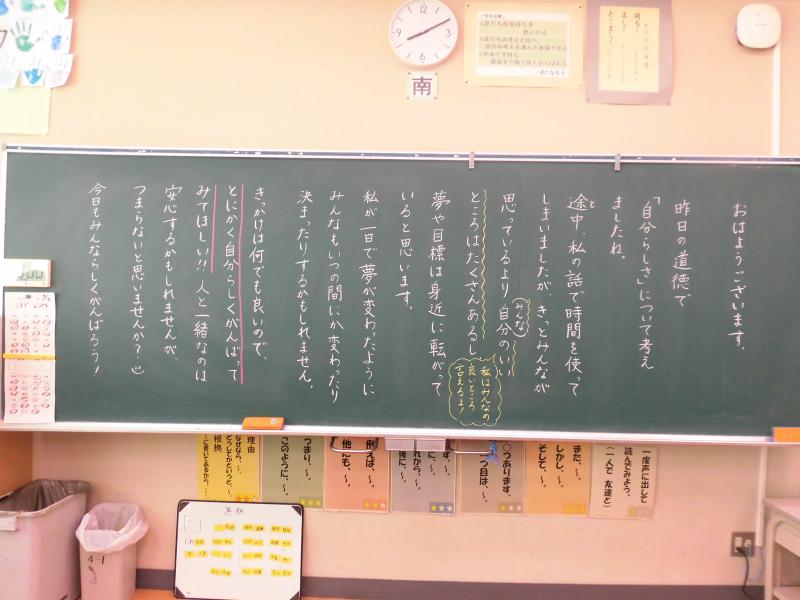 おはようございます。
昨日の道徳で
「自分らしさ」について考え
ましたね。
途中、私の話で時間を使って
と
しまいましたが、きっとみんなが
思っているより自分のいい
(みんな)
ところはたくさんあるし
私はみんなの
良いところ
言えるよ!
夢や目標は身近に転がって
いると思います。
私が一日で夢が変わったように
みんなもいつの間にか変わったり
決まったりするかもしれません。
きっかけは何でも良いので、
とにかく自分らしくがんばって
みてほしい!! 人と一緒なのは
安心するかもしれませんが、
つまらないと思いませんか?
今日もみんならしくがんばろう!
南
友だちの気持ちを
思いやる
明るく
正しく
たくましく
一度声に出して
読んでみよう。
(一人で 友達と)
また、~。
しかし、~。
そして、~。
つあります。
つ目は、~。
例えば、~。
他にも、~。
つまり、~。
このように、~。
理由
なぜなら、~。
どうしてかというと、~。
根拠
~に書いてあるから、~。
4-1